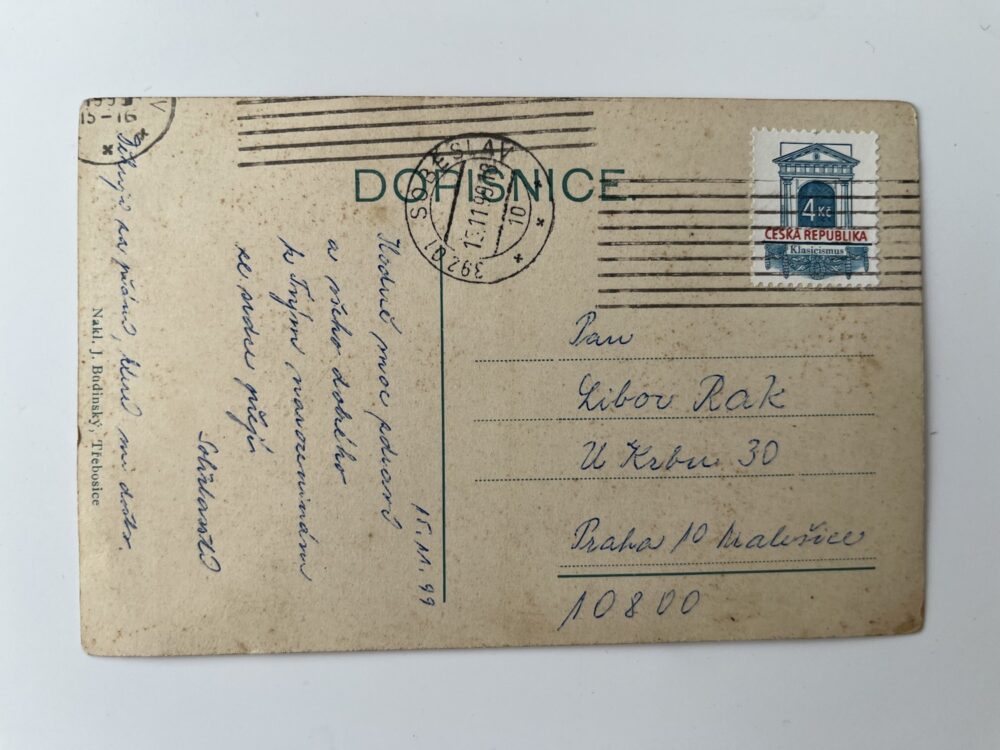 DOPISNICE.
SOBĚSLAV
15.11.99-18
10
392 01
15-16
4 Kč
ČESKÁ REPUBLIKA
Klasicismus
Pan
Libor Rak
U Krbu 30
Praha 10 Malešice
10800
15.11.99
Hodně moc zdraví
a všeho dobrého
k Tvým narozeninám
ze srdce přejí
Děkuji za přání, které mi došlo.
Nakl. J. Budinský, Třebosice